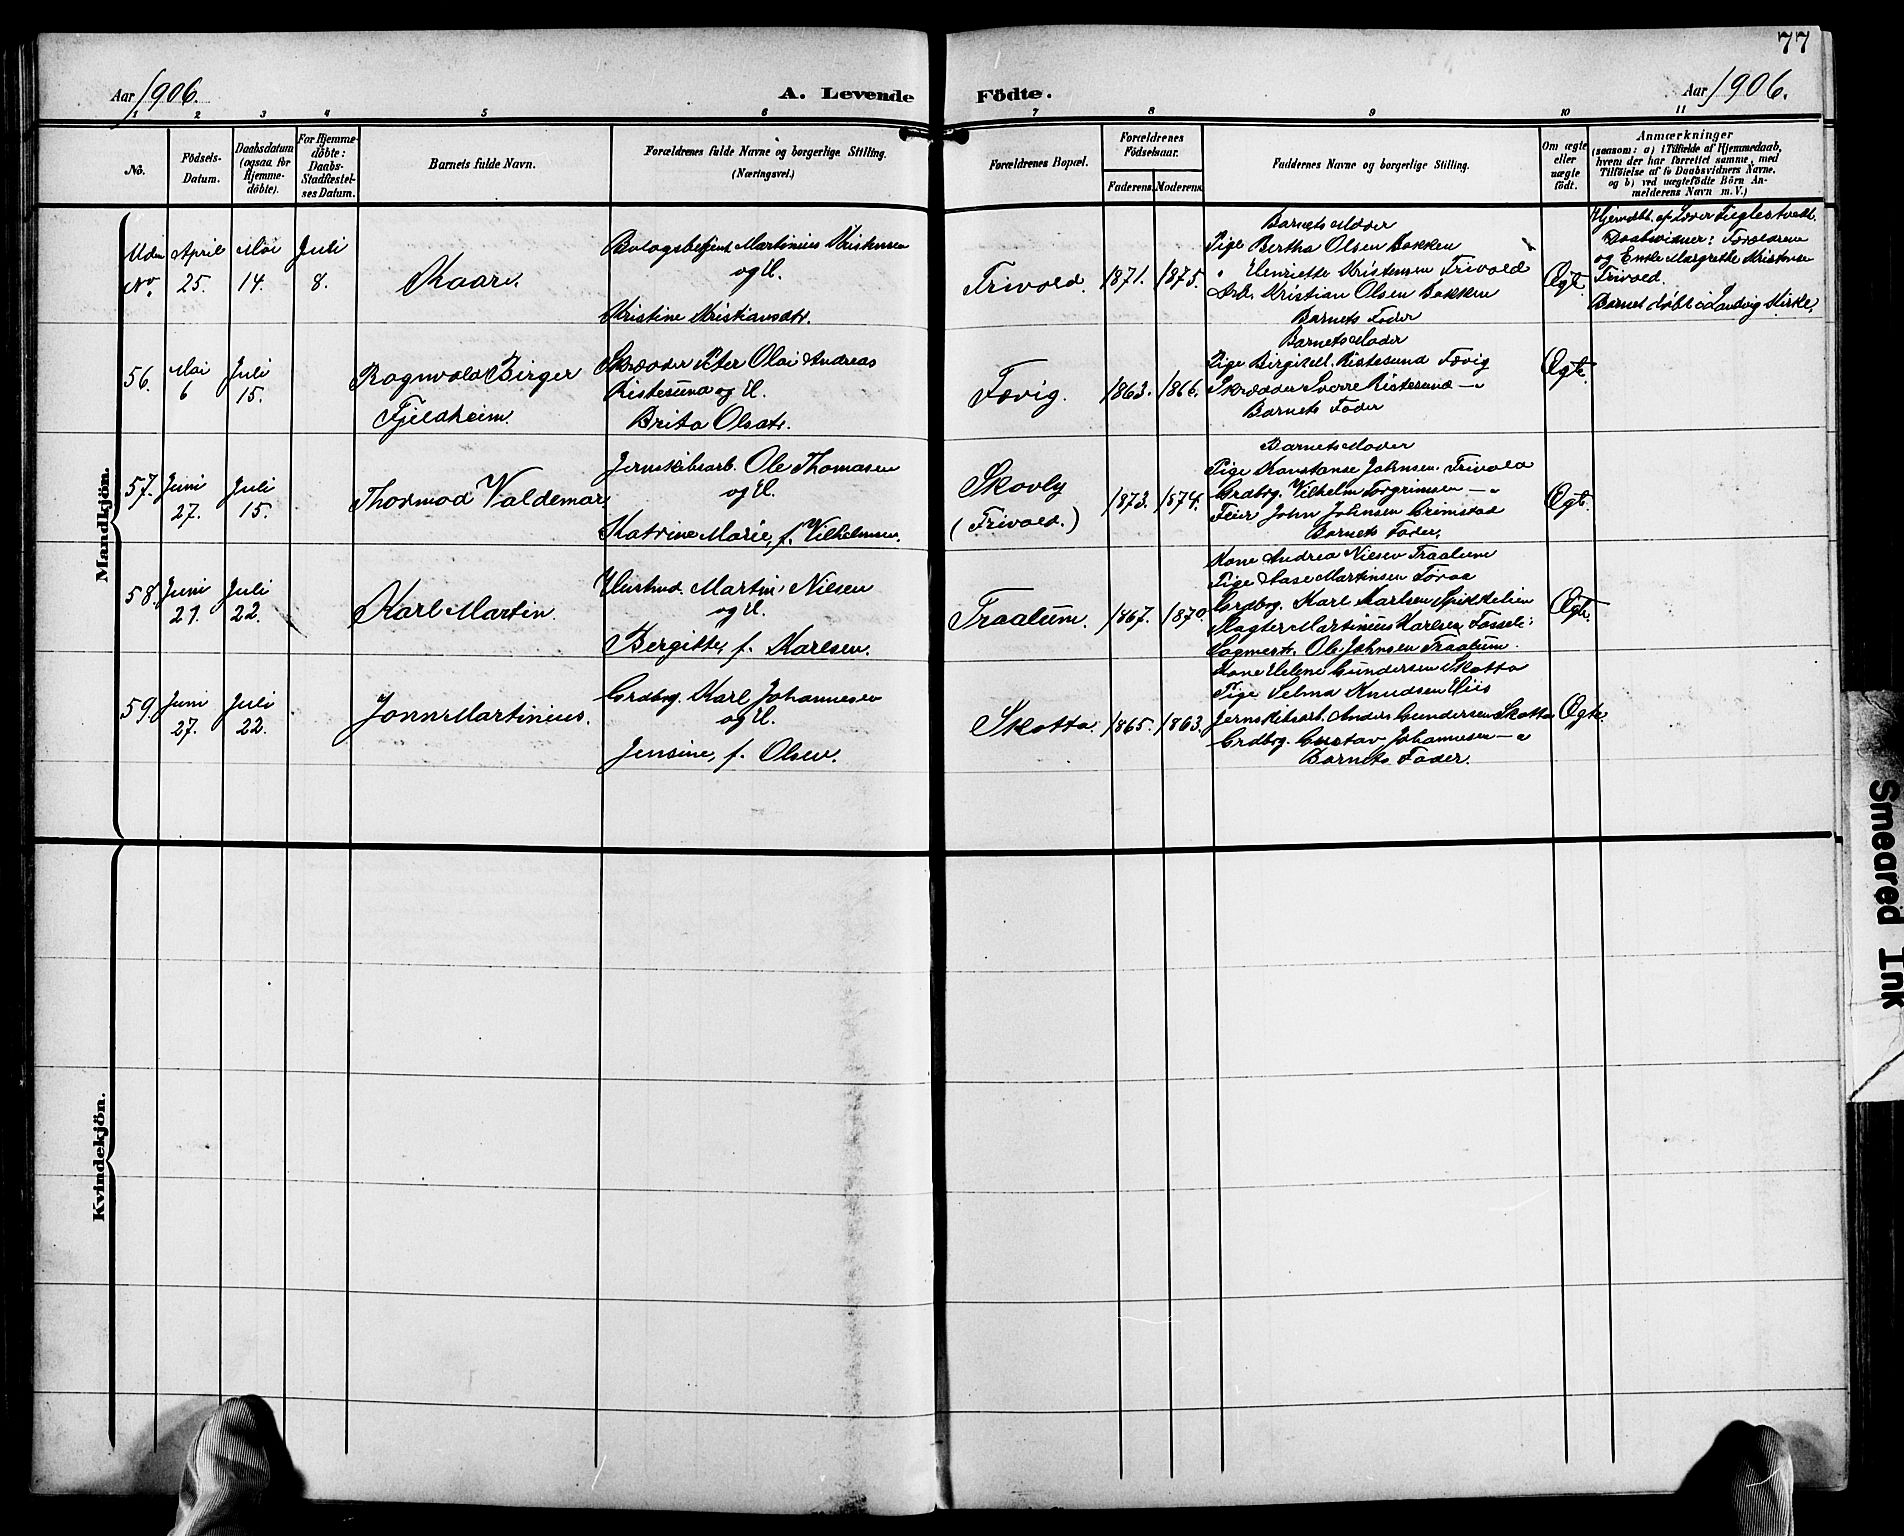 77
Aar 1906. A. Levende Födte. Aar 1906.
1 2 3 4 5 6 7 8 9 10 11
No.
Födsels-
Datum.
Daabsdatum
(ogsaa for
Hjemme-
döbte).
For Hjemme-
döbte:
Daabs-
Stadfæstel-
ses Datum.
Barnets fulde Navn.
Forældrenes fulde Navne og borgerlige Stilling.
(Næringsvei.)
Forældrenes Bopæl.
Forældrenes
Födselsaar.
Faderens. Moderens.
Faddernes Navne og borgerlige Stilling.
Om ægte
eller
uægte
født.
Anmærkninger
(saasom: a) i Tilfælde af Hjemmedaab,
hvem der har forrettet samme, med
Tilföielse af to Daabsvidners Navne,
og b) ved uægtefödte Börn An-
melderens Navn m. V.)
Mandkjön.
Uden
No.
April
25.
Mai
14.
Juli
8.
Kaare.
Bolagsbetjent Martinius Kristensen
og H.
Kristine Kristiansdtr.
Frivold.
1871. 1875.
Barnets Moder
Pige Bertha Olsen Bakken
" Henriette Kristensen Frivold
Arb. Kristian Olsen Bakken
Barnets Fader
Ægte.
Hjemdbt. af Lærer Fieglestvedt.
Daabsvidner: Forældrene
og Enke Margrethe Kristensen
Frivold.
Barnet døbt i Landvig Kirke.
56.
Mai
6
Juli
15.
Ragnvald Birger
Fjeldheim.
Skræder Peter Olai Andreas
Ristesund og H.
Brita Olsdtr.
Fævig.
1863. 1866.
Barnets Moder
Pige Birgit M. Ristesund Fævig
Skrædder Sverre Ristesund — "
Barnets Fader
Ægte.
57.
Juni
27.
Juli
15.
Thormod Valdemar.
Jernskibsarb. Ole Thomasen
og H.
Katrine Marie, f. Vilhelmsen.
Skovly
(Frivold.)
1873. 1874.
Barnets Moder
Pige Konstanse Johnsen. Frivold
Grdbrg. Vilhelm Torgrimsen — "
Feier John Johnsen Grimstad
Barnets Fader.
Ægte.
58.
Juni
21.
Juli
22.
Karl Martin.
Husmd. Martin Nilsen
og H.
Bergitte, f. Karlsen.
Traalum.
1867. 1870.
Kone Andrea Nilsen Traalum
Pige Aase Martinsen Toraa
Grdbrg. Karl Karlsen Spikkelien
Slagter Martinius Karlsen Fosseli
Sagmest. Ole Johnsen Traalum.
Ægte.
59.
Juni
27.
Juli
22.
Jonn Martinius.
Grdbrg. Karl Johannesen
og H.
Jensine, f. Olsen.
Skotta.
1865. 1863.
Kone Helene Gundersen Skotta
Pige Selma Knudsen Hiis
Jernskibsarb. Anders Gundersen Skotta
Grdbrg. Gustav Johannesen — "
Barnets Fader.
Ægte.
Kvindekjön.
Smeared Ink